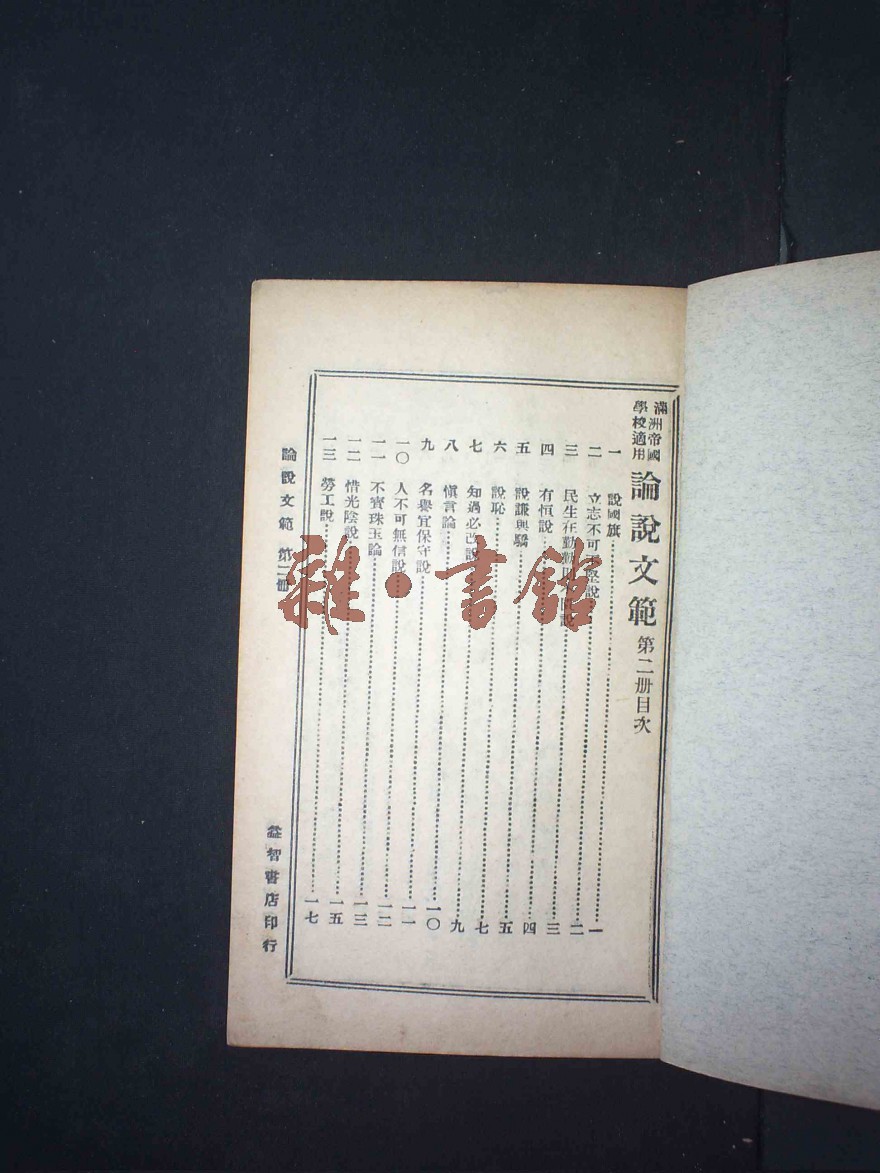 滿洲帝國
學校適用
論說文範 第二册目次
一 說國旗 一
二 立志不可不堅說 二
三 民生在勤勤則不匱說 三
四 有恒說 四
五 說謙與驕 五
六 說恥 七
七 知過必改說 九
八 愼言論 一〇
九 名譽宜保守說 一一
一〇 人不可無信說 一二
一一 不寶珠玉論 一三
一二 惜光陰說 一五
一三 勞工說 一七
論說文範 第二册
益智書店印行
雜·書館